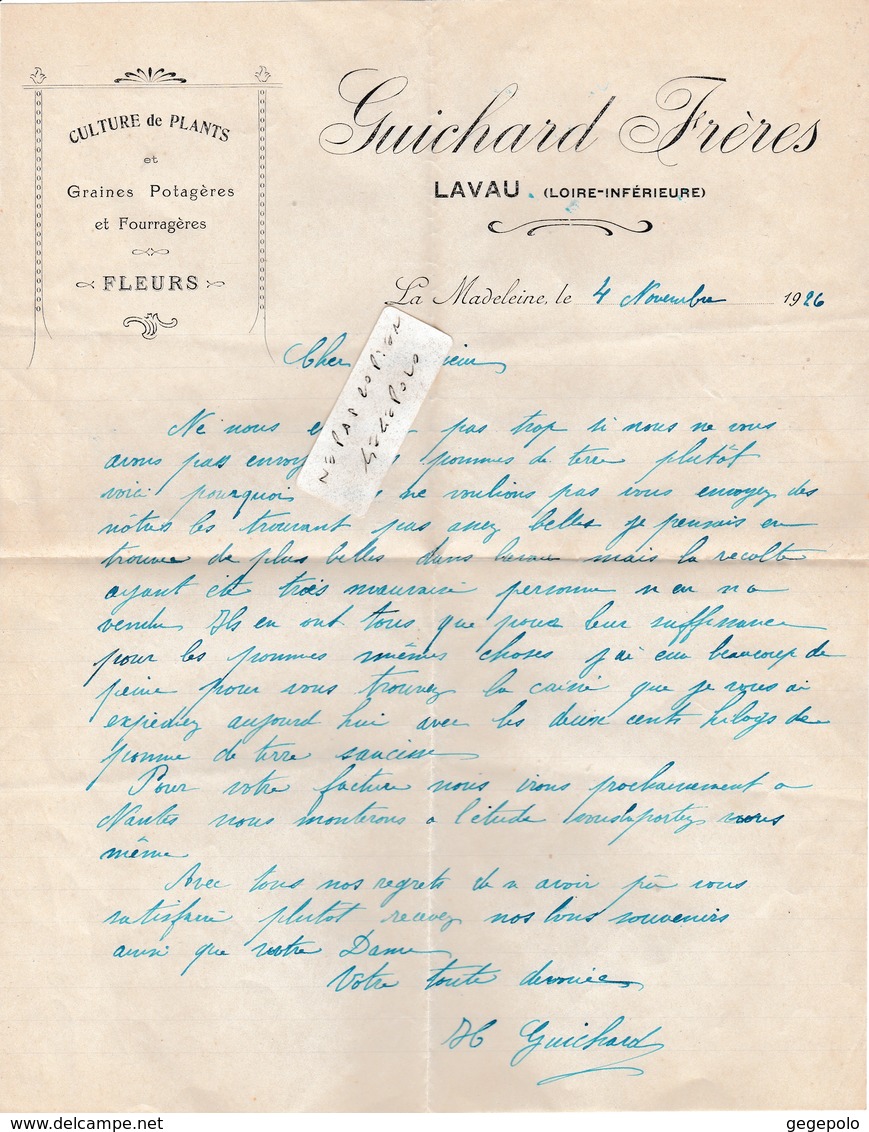 CULTURE de PLANTS
et
Graines Potagères
et Fourragères
FLEURS
Guichard Frères
LAVAU. (LOIRE-INFÉRIEURE)
La Madeleine, le 4 Novembre 1926
Cher
NE PAS COPIER
GEGEPOLO
Ne nous pas trop si nous ne vous
avons pas envoy pommes de terre plutôt
voici pourquoi ne voulions pas vous envoyez des
nôtres les trouvant pas assez belles je pensais en
trouver de plus belles dans lavau mais la recolte
ayant été très mauvaise personne n en n a
vendu Ils en ont tous que pour leur suffisance
pour les pommes mêmes choses j'ai eu beaucoup de
peine pour vous trouvez la caisse que je vous ai
expediez aujourd hui avec les deux cents kilogs de
pomme de terre saucisse
Pour votre facture nous irons prochainement a
Nantes nous monterons a l'étude vous la portez nous
même
Avec tous nos regrets de n avoir pu vous
satisfaire plutôt recevez nos bons souvenirs
ainsi que votre Dame
Votre toute devouée
H Guichard
gegepolo